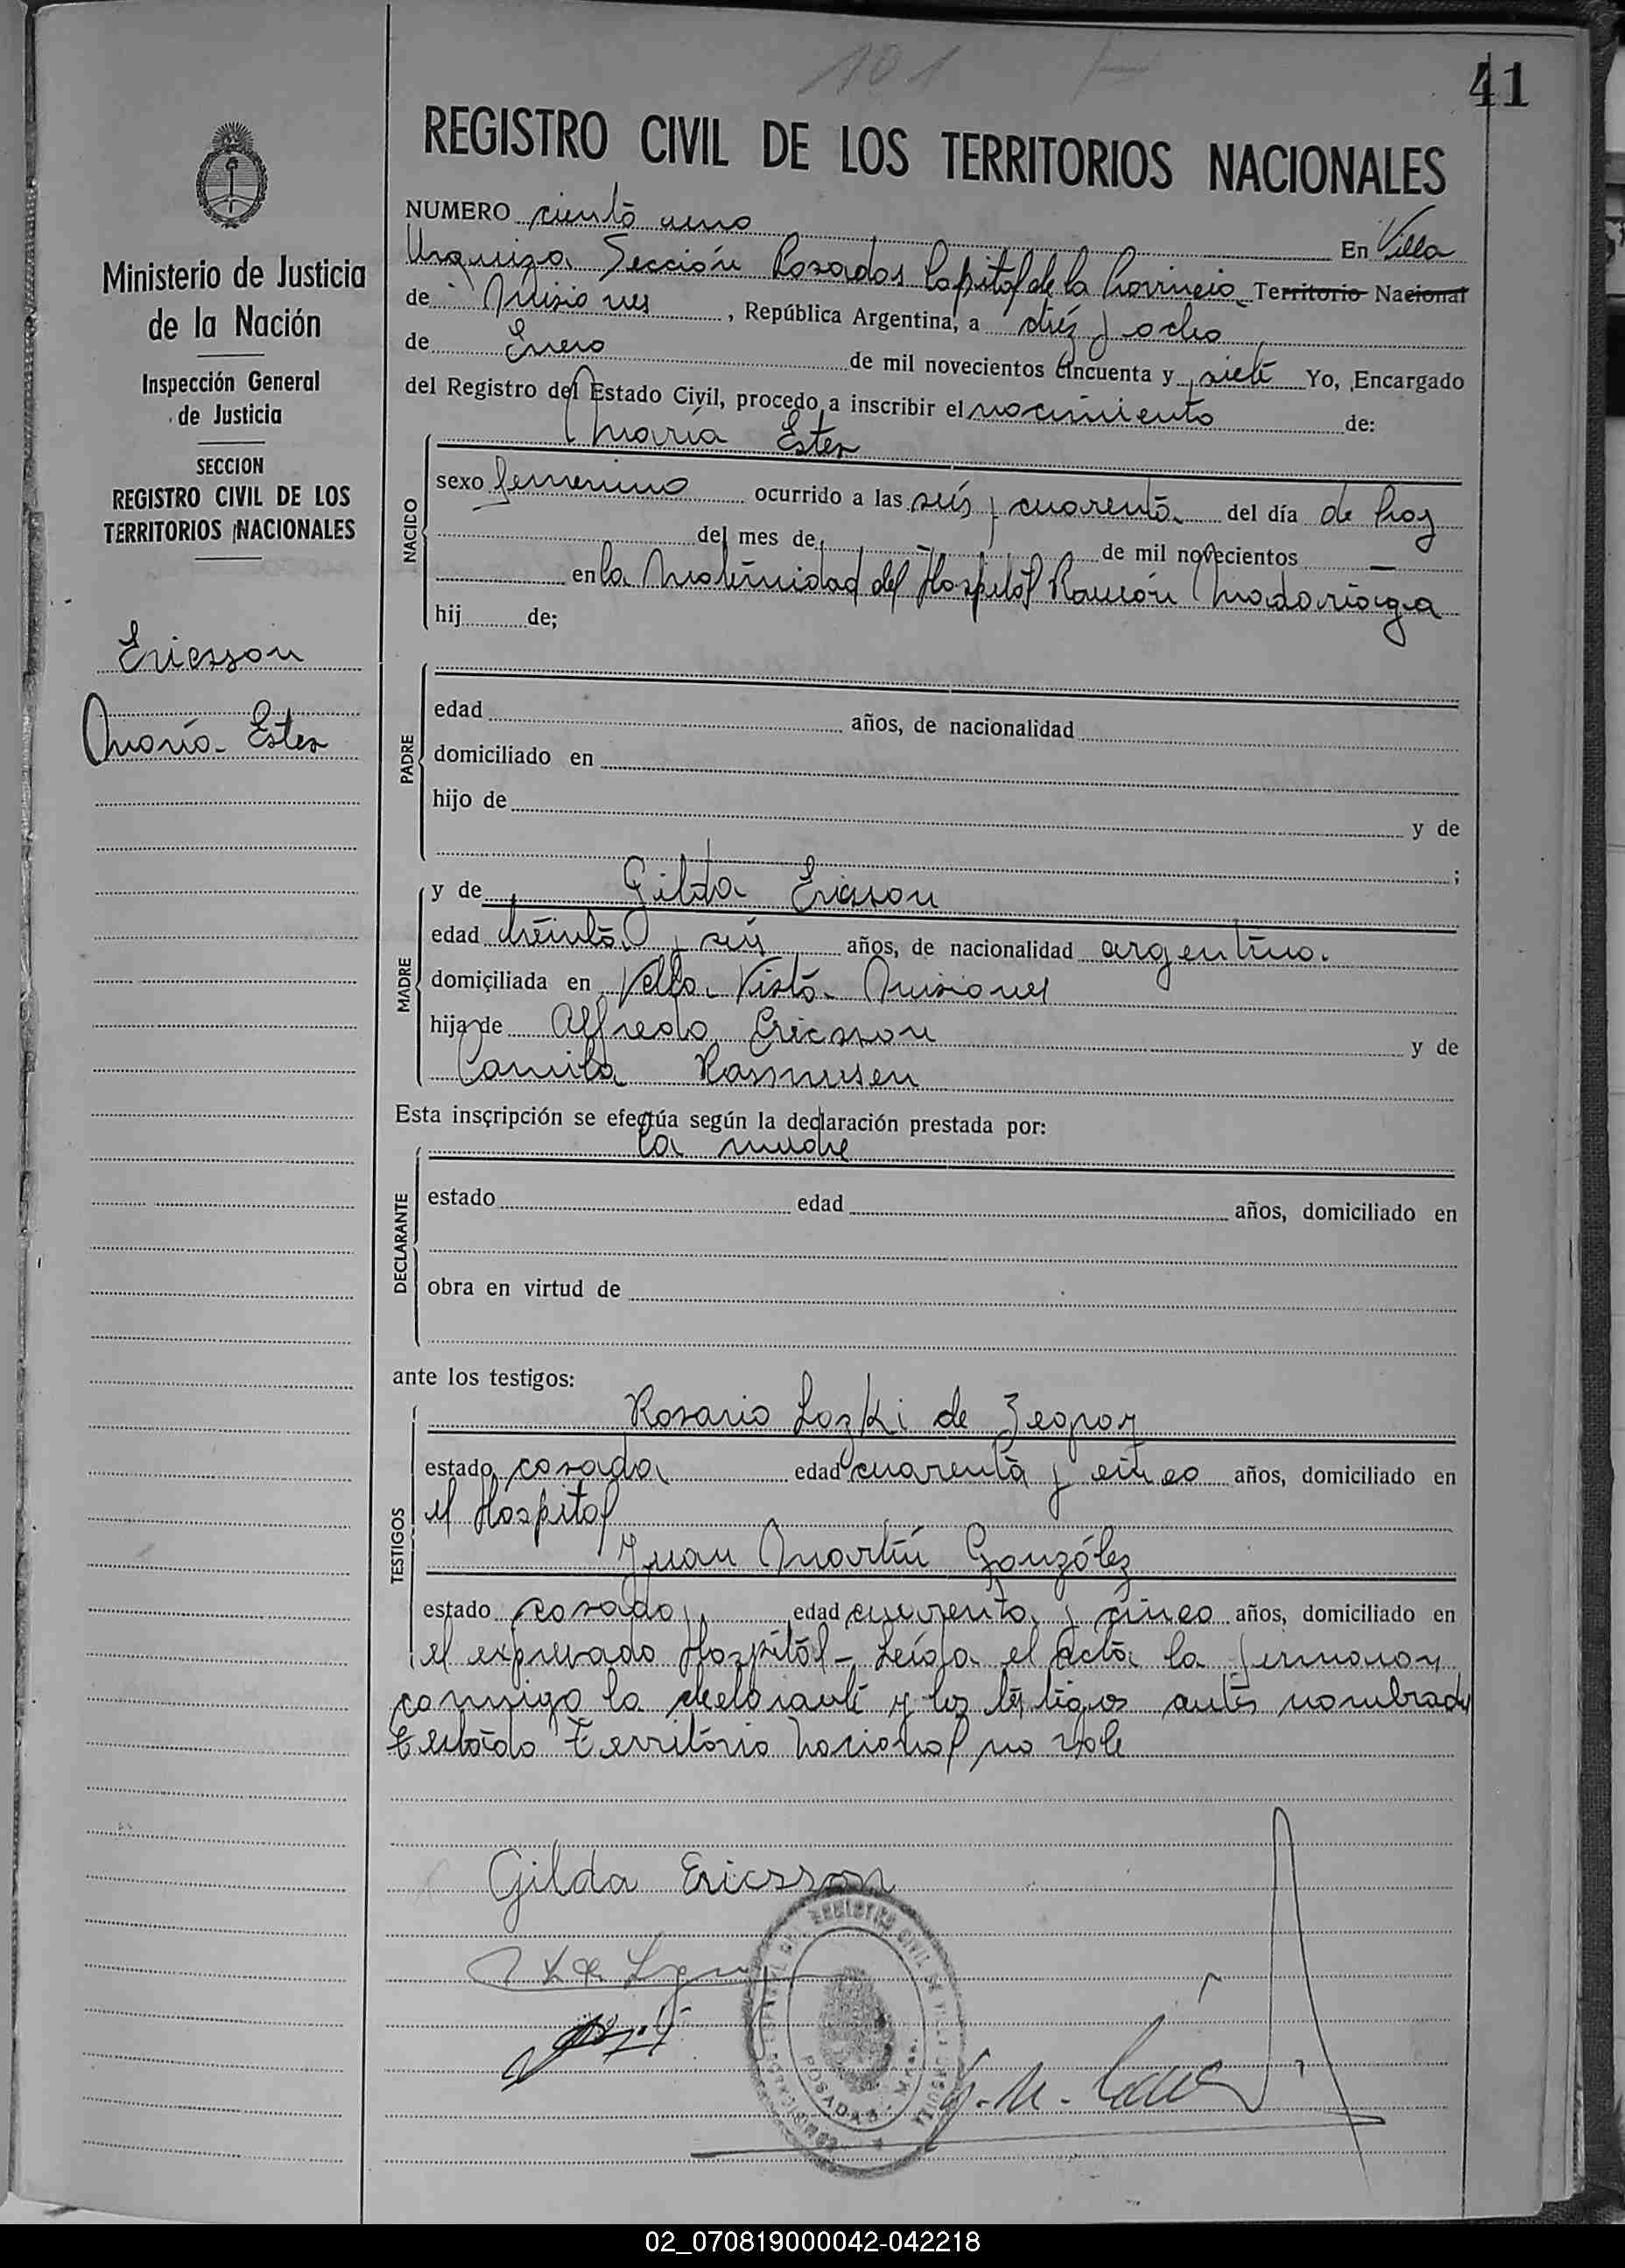 101
41
REGISTRO CIVIL DE LOS TERRITORIOS NACIONALES
Ministerio de Justicia
de la Nación
Inspección General
de Justicia
SECCION
REGISTRO CIVIL DE LOS
TERRITORIOS NACIONALES
Ericsson
María Ester
NUMERO ciento uno En Villa
Urquiza Sección Posadas Capital de la Provincia Territorio Nacional
de Misiones, República Argentina, a diez y ocho
de Enero de mil novecientos cincuenta y siete Yo, Encargado
del Registro del Estado Civil, procedo a inscribir el nacimiento de:
María Ester
NACIDO
sexo femenino ocurrido a las seis y cuarenta del día de hoy
del mes de - de mil novecientos —
en la Maternidad del Hospital Ramón Madariaga
hij de;
PADRE
edad años, de nacionalidad
domiciliado en
hijo de y de
;
MADRE
y de Gilda Ericsson
edad treinta y seis años, de nacionalidad argentina.
domiciliada en Bella Vista Misiones
hija de Alfredo Ericsson y de
Camila Rasmusen
Esta inscripción se efectúa según la declaración prestada por:
la madre
DECLARANTE
estado edad años, domiciliado en
obra en virtud de
ante los testigos:
TESTIGOS
Rosario Lozki de
estado casada edad cuarenta y cinco años, domiciliado en
el Hospital
Juan Martín González
estado casado, edad cuarenta y cinco años, domiciliado en
el expresado Hospital - Leída el acta la firmaron
conmigo la declarante y los testigos antes nombrados
Testado Territorio Nacional no vale
Gilda Ericsson
REGISTRO CIVIL DE VILLA URQUIZA
POSADAS
02_070819000042-042218